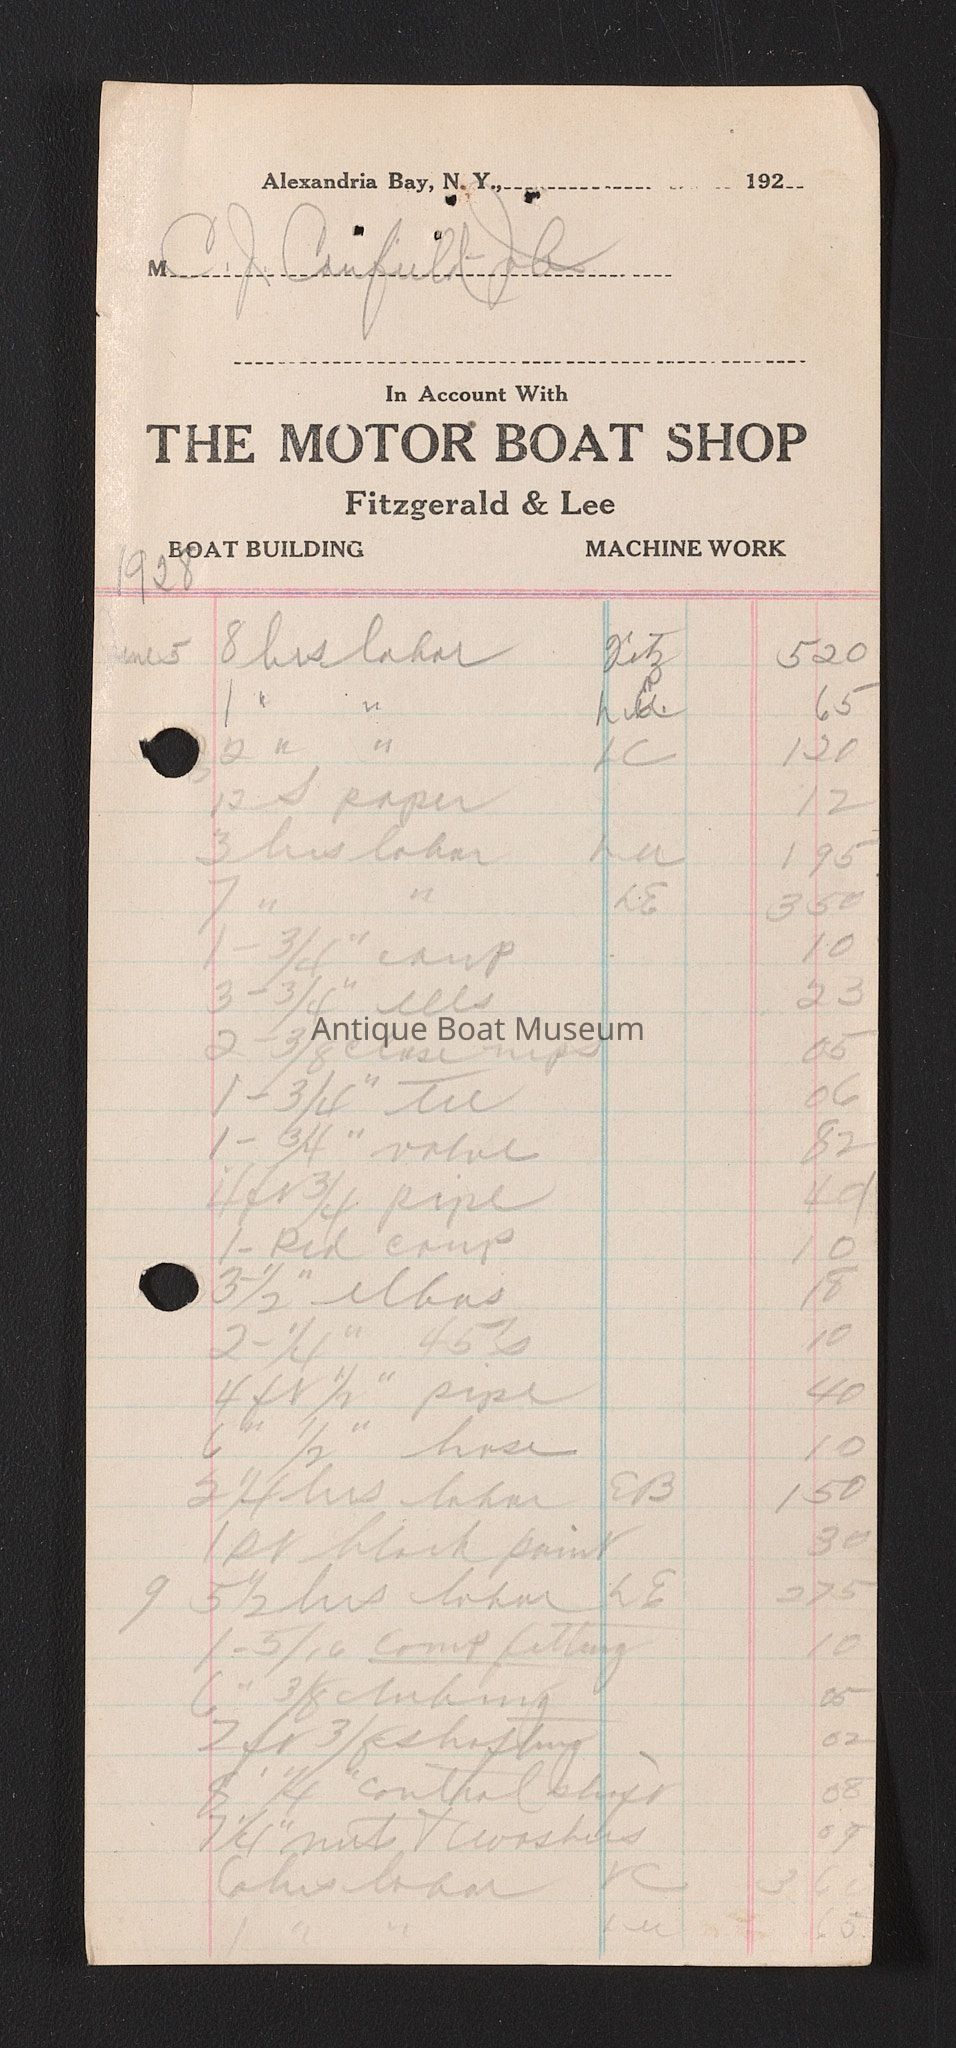 Alexandria Bay, N. Y., 192
M C. J. Canfield Job
In Account With
THE MOTOR BOAT SHOP
Fitzgerald & Lee
BOAT BUILDING MACHINE WORK
1928
June 5 8 hrs labor Fitz 5 20
1 " " 65
2 " " LC 1 20
12 S paper 12
3 hrs labor Lee 1 95
7 " " LE 3 50
1 - 3/4" coup 10
3 - 3/4" ells 23
2 - 3/8 close nips 05
Antique Boat Museum
1 - 3/4" tee 06
1 - 3/4" valve 82
4 ft 3/4 pipe 40
1 - Red coup 10
3 1/2" elbows 18
2 - 1/4" 45s 10
4 ft 1/2" pipe 40
6" 1/2" hose 10
2 1/4 hrs labor EB 1 50
1 pt black paint 30
9 5 1/2 hrs labor LE 2 75
1 - 5/16 comp fitting 10
6" 3/8 tubing 05
2 ft 3/8 shafting 02
8' 1/4" control shaft 08
7 1/4" nuts & washers 09
6 hrs labor 3 60
1 " " Lee 65